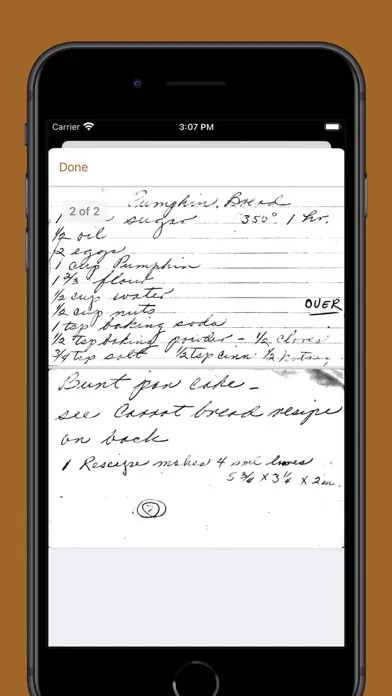 Carrier 3:07 PM
Done
Pumpkin Bread
2 of 2
1 sugar 350° 1 hr.
1/2 oil
2 eggs
1 cup Pumpkin
1 2/3 flour
1/2 cup water
1/2 cup nuts OVER
1 tsp baking soda
1/2 tsp baking powder - 1/2 cloves
3/4 tsp salt 1/2 tsp cinn 1/2 nutmeg
Bunt pan cake -
see Carrot bread resipe
on back
1 Rescipe makes 4 sml loaves
5 3/4 X 3 1/4 X 2 in